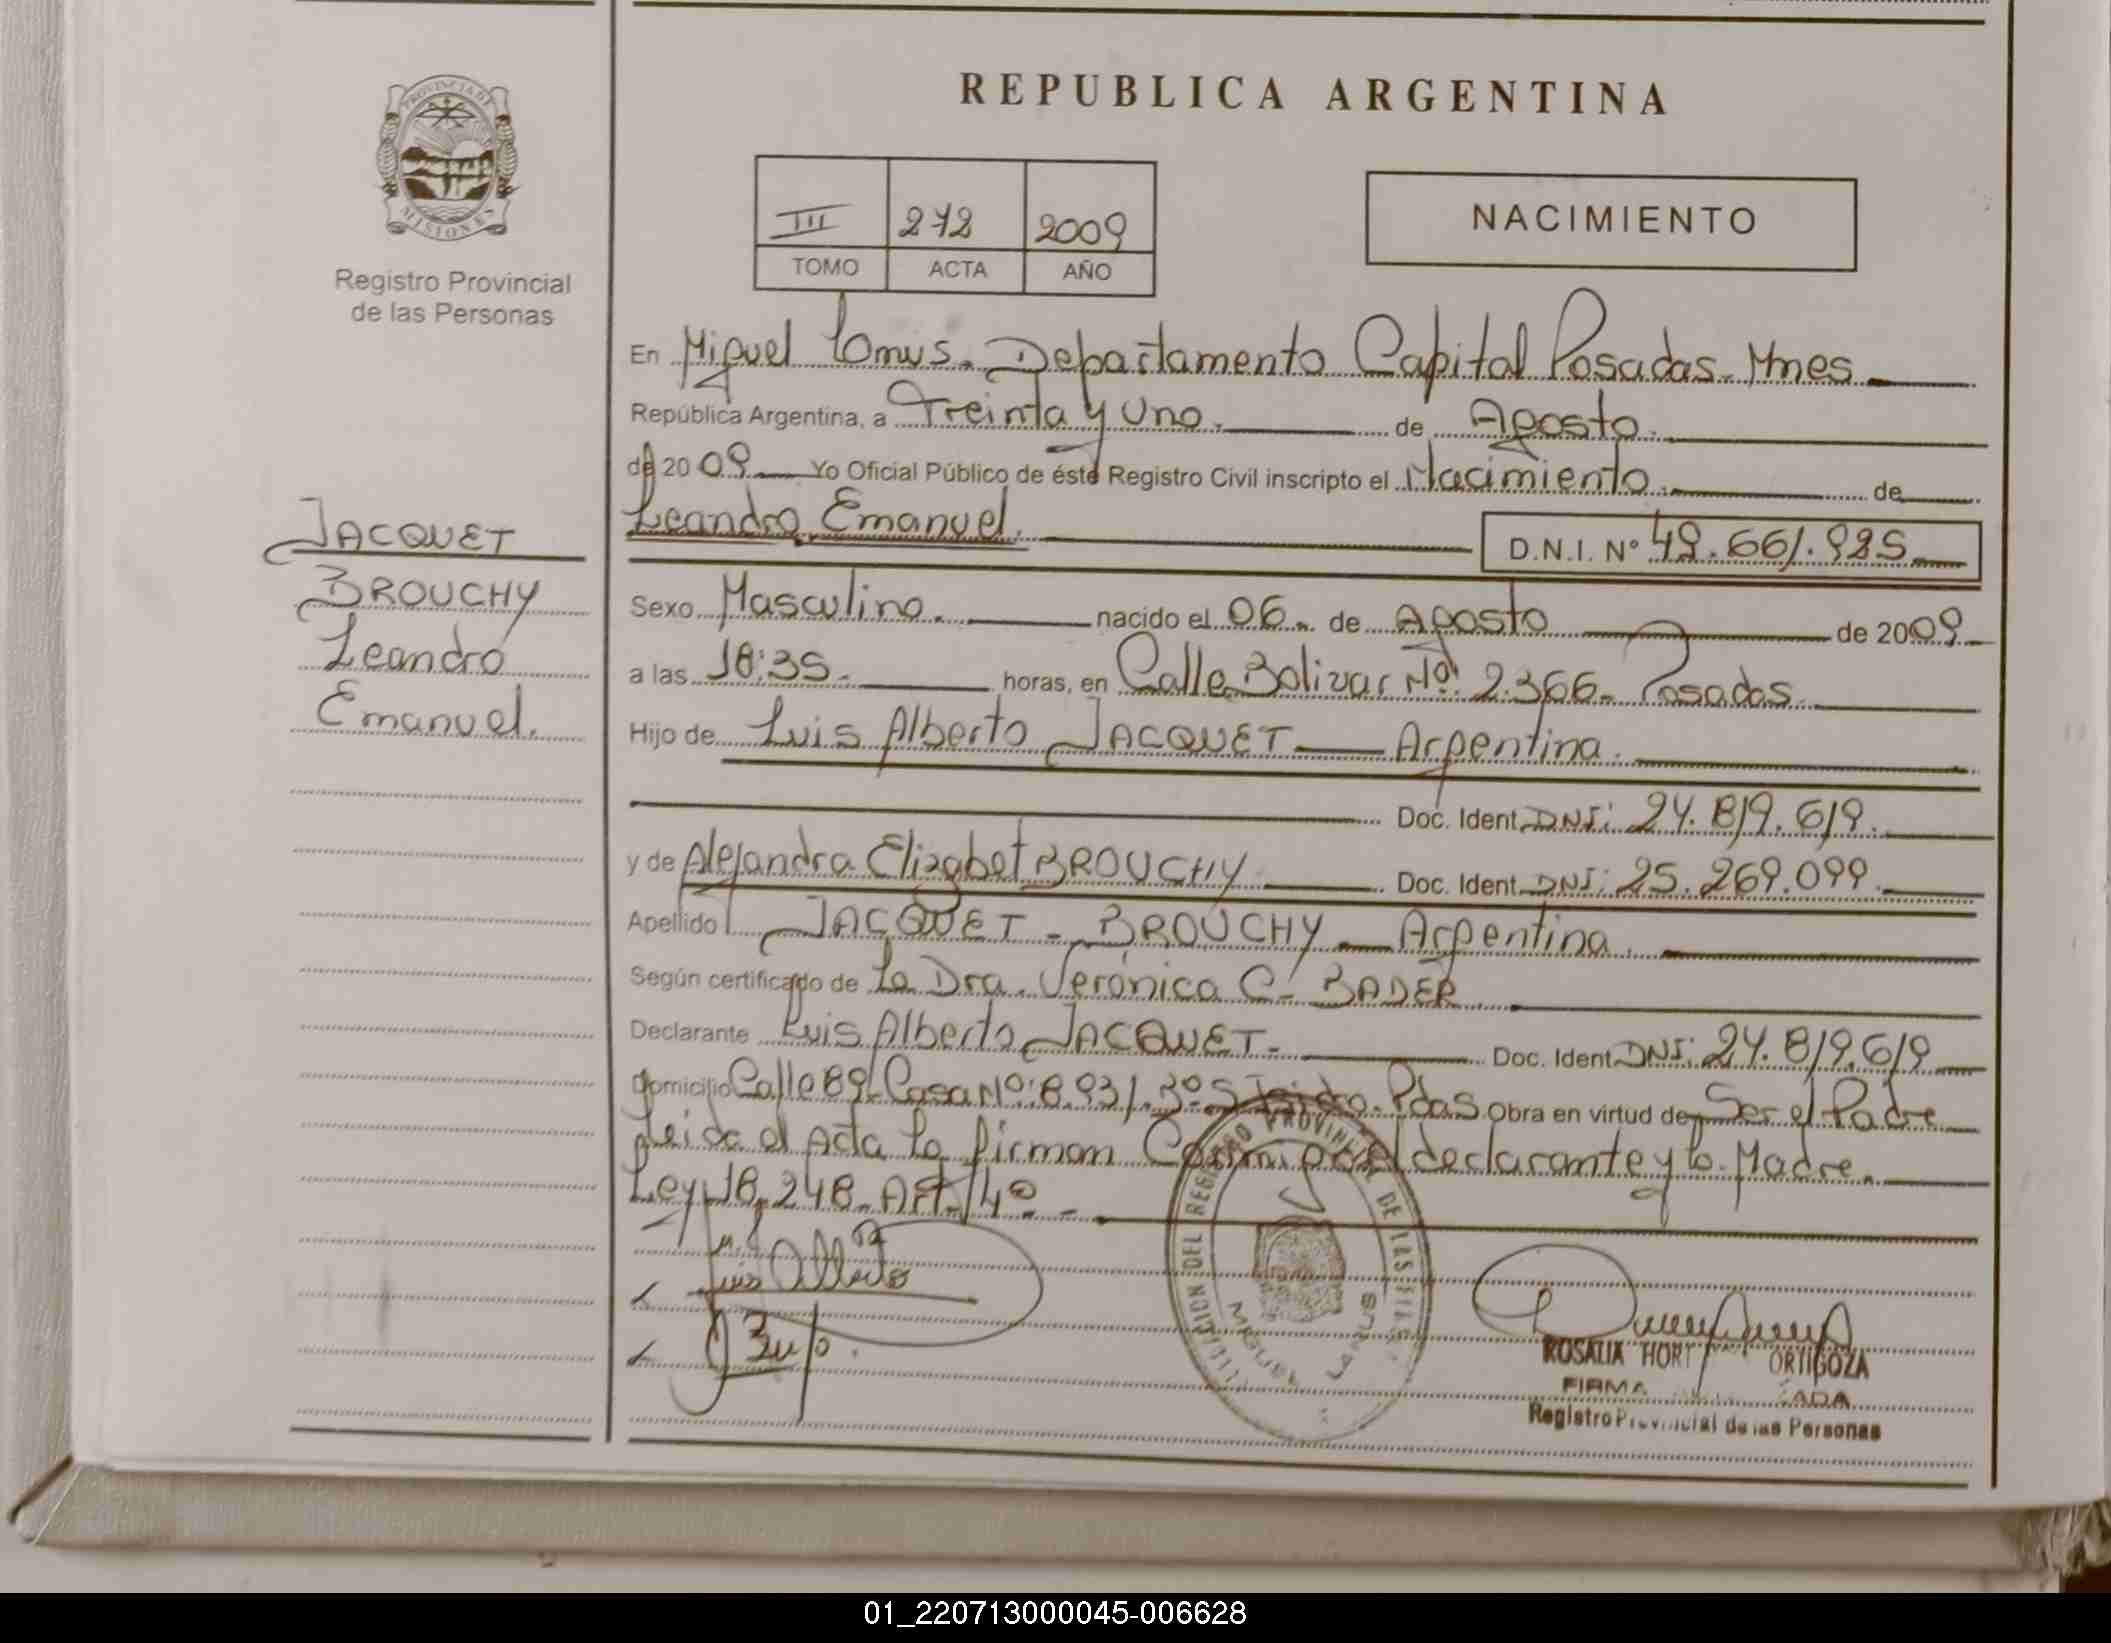 PROVINCIA DE
MISIONES
Registro Provincial
de las Personas
JACQUET
BROUCHY
Leandro
Emanuel.
REPUBLICA ARGENTINA
III 272 2009
TOMO ACTA AÑO
NACIMIENTO
En Miguel Lanus. Departamento Capital Posadas. Mnes
República Argentina, a Treinta y Uno. de Agosto.
de 2009 Yo Oficial Público de éste Registro Civil inscripto el Nacimiento. de
Leandro Emanuel. D.N.I. Nº 49.661.985
Sexo Masculino. nacido el 06. de Agosto de 2009
a las 18:35. horas, en Calle Bolivar Nº 2366. Posadas.
Hijo de Luis Alberto JACQUET Argentina.
Doc. Ident. DNI: 24.819.619.
y de Alejandra Elizabet BROUCHY Doc. Ident. DNI: 25.269.099.
Apellido JACQUET - BROUCHY Argentina.
Según certificado de La Dra. Verónica C. BADER
Declarante Luis Alberto JACQUET. Doc. Ident. DNI: 24.819.619
domicilio Calle 89 Casa Nº: 8.931. Bº S Isidro. Pdas Obra en virtud de Ser el Padre
Leida el Acta la firman Conmigo el declarante y la Madre.
Ley 18.248. Art. 4º.
Luis Alberto
REGISTRO PROVINCIAL DE LAS
MIGUEL LANUS
ROSALIA ORTIGOZA
FIRMA
Registro Provincial de las Personas
01_220713000045-006628